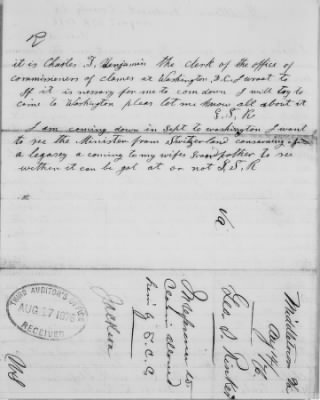 it is Charles F. Benjamin the clerk of the office of
commissioners of clames at Washington, D.C. I wrote to
If it is nessary for me to com down I will try to
come to Washington pleas let me know all about it
I am coming down in Sept to washington I want
to see the Minister from Switzerland conserning
a legasey a coming to my wifes Grandfather to see
wethen it can be got at or not
Va
THIRD AUDITOR'S OFFICE
AUG 17 1876
RECEIVED
Middletown
Aug
Geo S.
In reference to
Claim allowed
him by S.C.C.